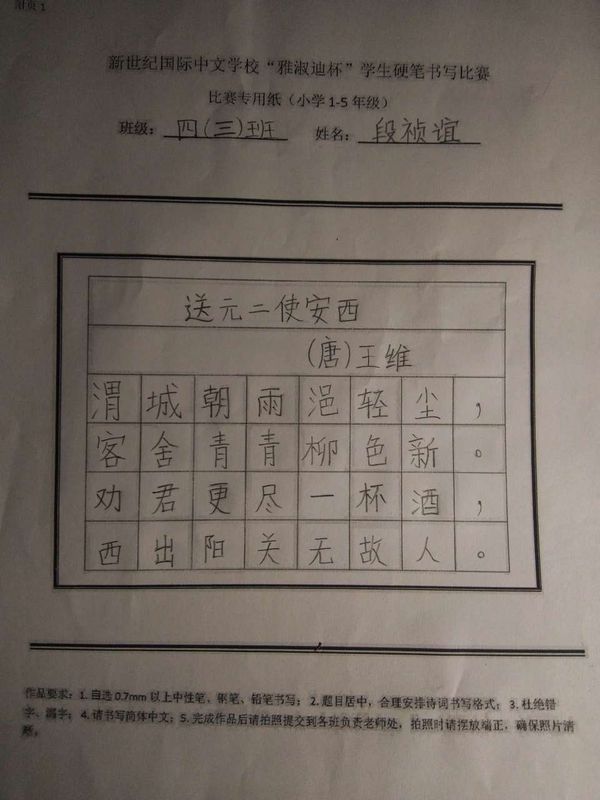 附页 1
新世纪国际中文学校“雅淑迪杯”学生硬笔书写比赛
比赛专用纸（小学 1-5 年级）
班级：四(三)班 姓名：段祯谊
送元二使安西
(唐)王维
渭城朝雨浥轻尘，
客舍青青柳色新。
劝君更尽一杯酒，
西出阳关无故人。
作品要求：1. 自选 0.7mm 以上中性笔、钢笔、铅笔书写；2. 题目居中，合理安排诗词书写格式；3. 杜绝错
字、漏字；4. 请书写简体中文；5. 完成作品后请拍照提交到各班负责老师处，拍照时请摆放端正，确保照片清
晰。